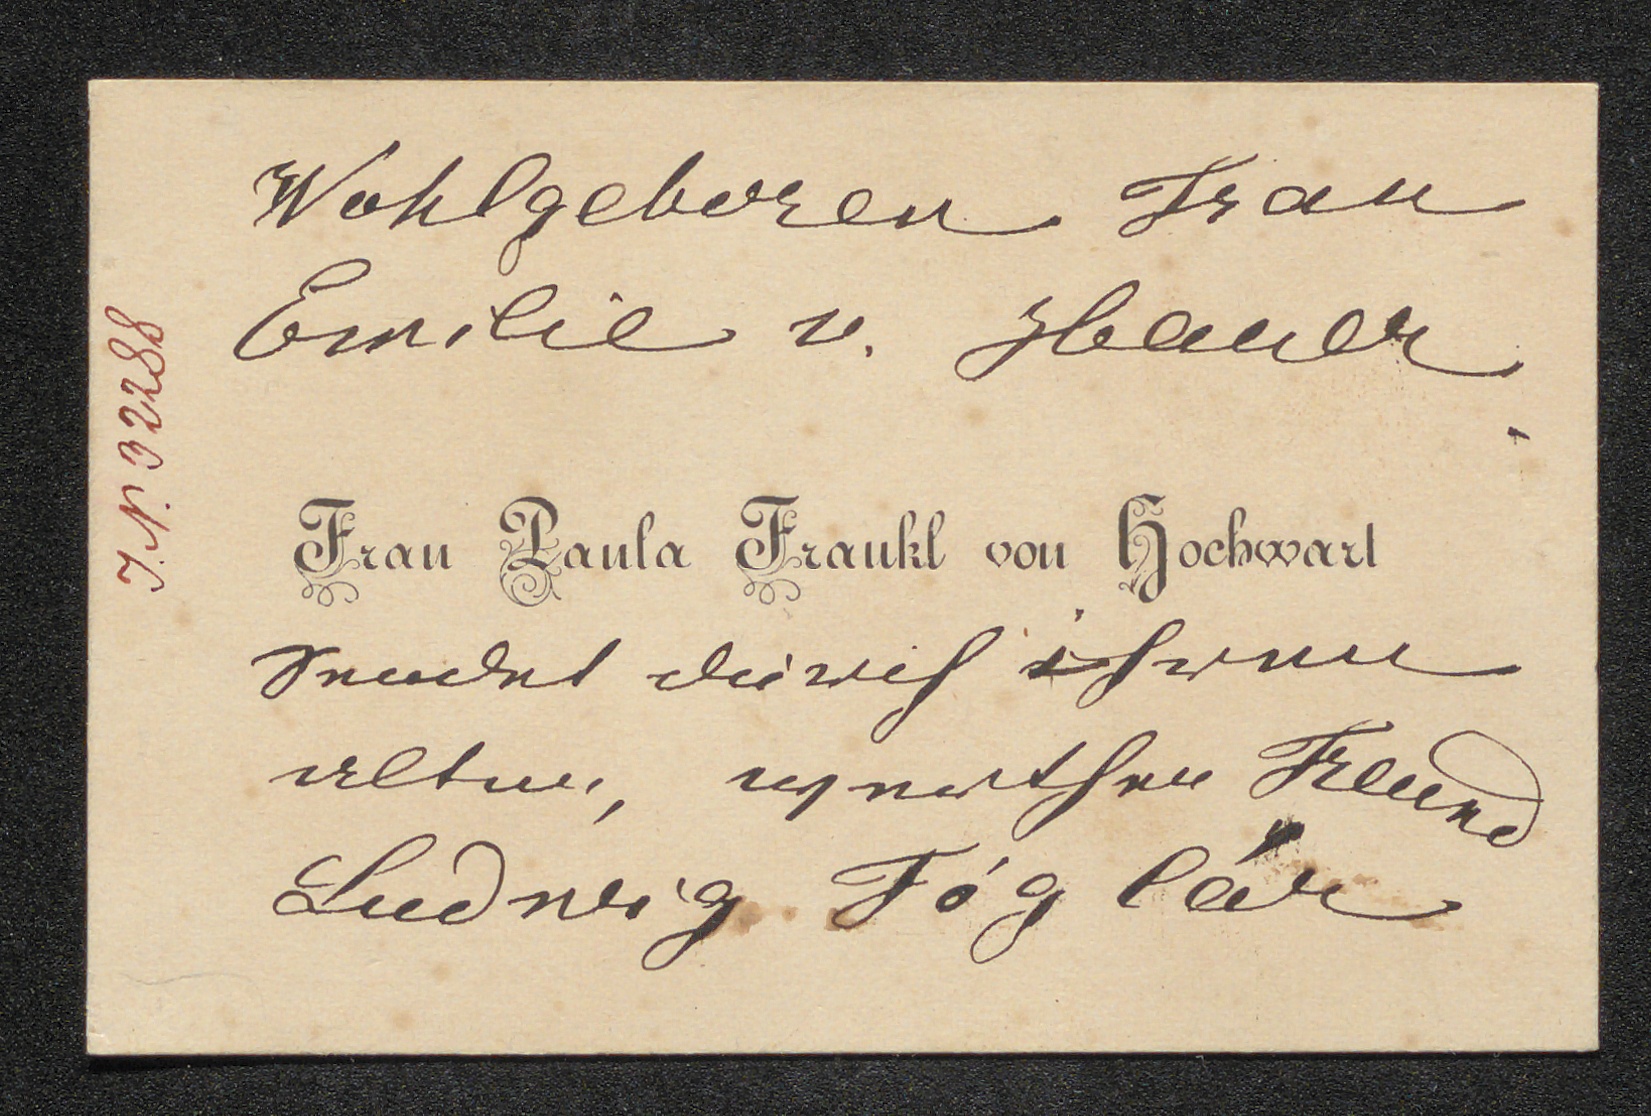 Wohlgeboren Frau
Emilie v. Hauer
Frau Paula Frankl von Hochwart
sendet durch ihren
alten, werthen Freund
Ludwig Fóglár
J. N. 32288